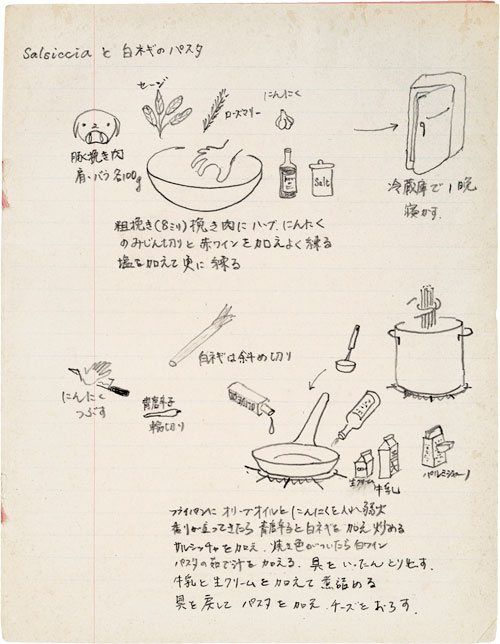 Salsiccia と 白ネギのパスタ
セージ
ローズマリー
にんにく
豚挽き肉
肩・バラ各100g
Salt
冷蔵庫で1晩
寝かす.
粗挽き(8ミリ)挽き肉にハーブ、にんにく
のみじん切りと赤ワインを加えよく練る
塩を加えて更に練る
白ネギは斜め切り
にんにく
つぶす
青唐辛子
輪切り
生クリーム
牛乳
パルミジャーノ
フライパンに オリーブオイルと にんにくを入れ弱火
香りが立ってきたら 青唐辛子と白ネギを加え 炒める
サルシッチャを加え、焼き色がついたら白ワイン
パスタの茹で汁を加える、具をいったんとり出す.
牛乳と生クリームを加えて煮詰める
具を戻して パスタを加え チーズをおろす.